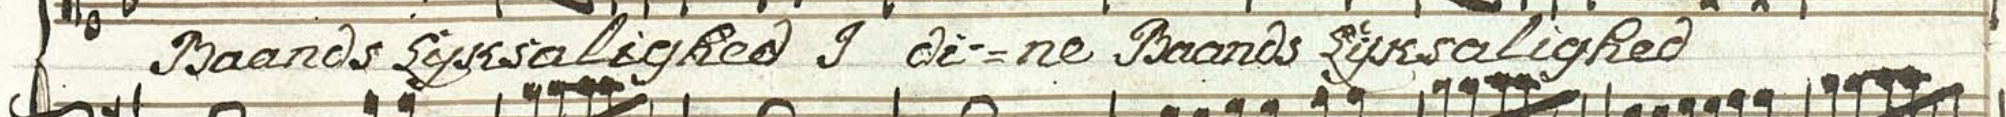 Baands Lyksalighed I di-=ne Baands Lyksalighed